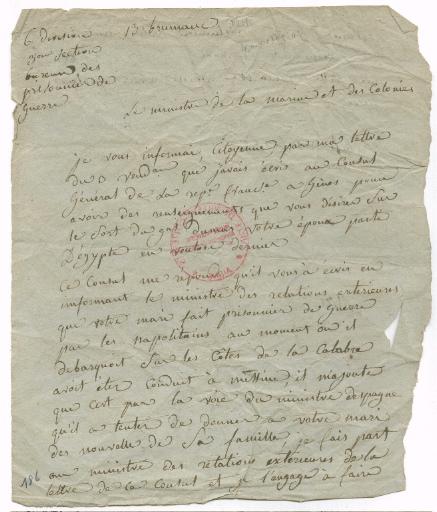 6 division 13 brumaire
3eme section
bureau des
prisonniers de
guerre
Le ministre de la marine et des Colonies
je vous informai, Citoyenne, par ma lettre
du 3 vendre que j'avois écri au Consul
Général de La repe francse a Gênes pour
avoir des renseignemens que vous désirez Sur
le Sort du gal dumas, votre époux parti
D'égypte en ventose dernier
ce Consul me répond qu'il vous à écrit en
informant le ministre des relations extérieures
que votre mari fait prisonnier de Guerre
par les napolitains au moment où il
debarquoit Sur les Côtes de la Calabre
avoit éter Conduit à méssine il majoute
que C'est par la voie du ministre d'espagne
qu'il a tenter de donner à votre mari
des nouvelle de Sa famille, je fais part
au ministre des relations exterieures de la
lettre de ce Consul et je l'engage à faire
186